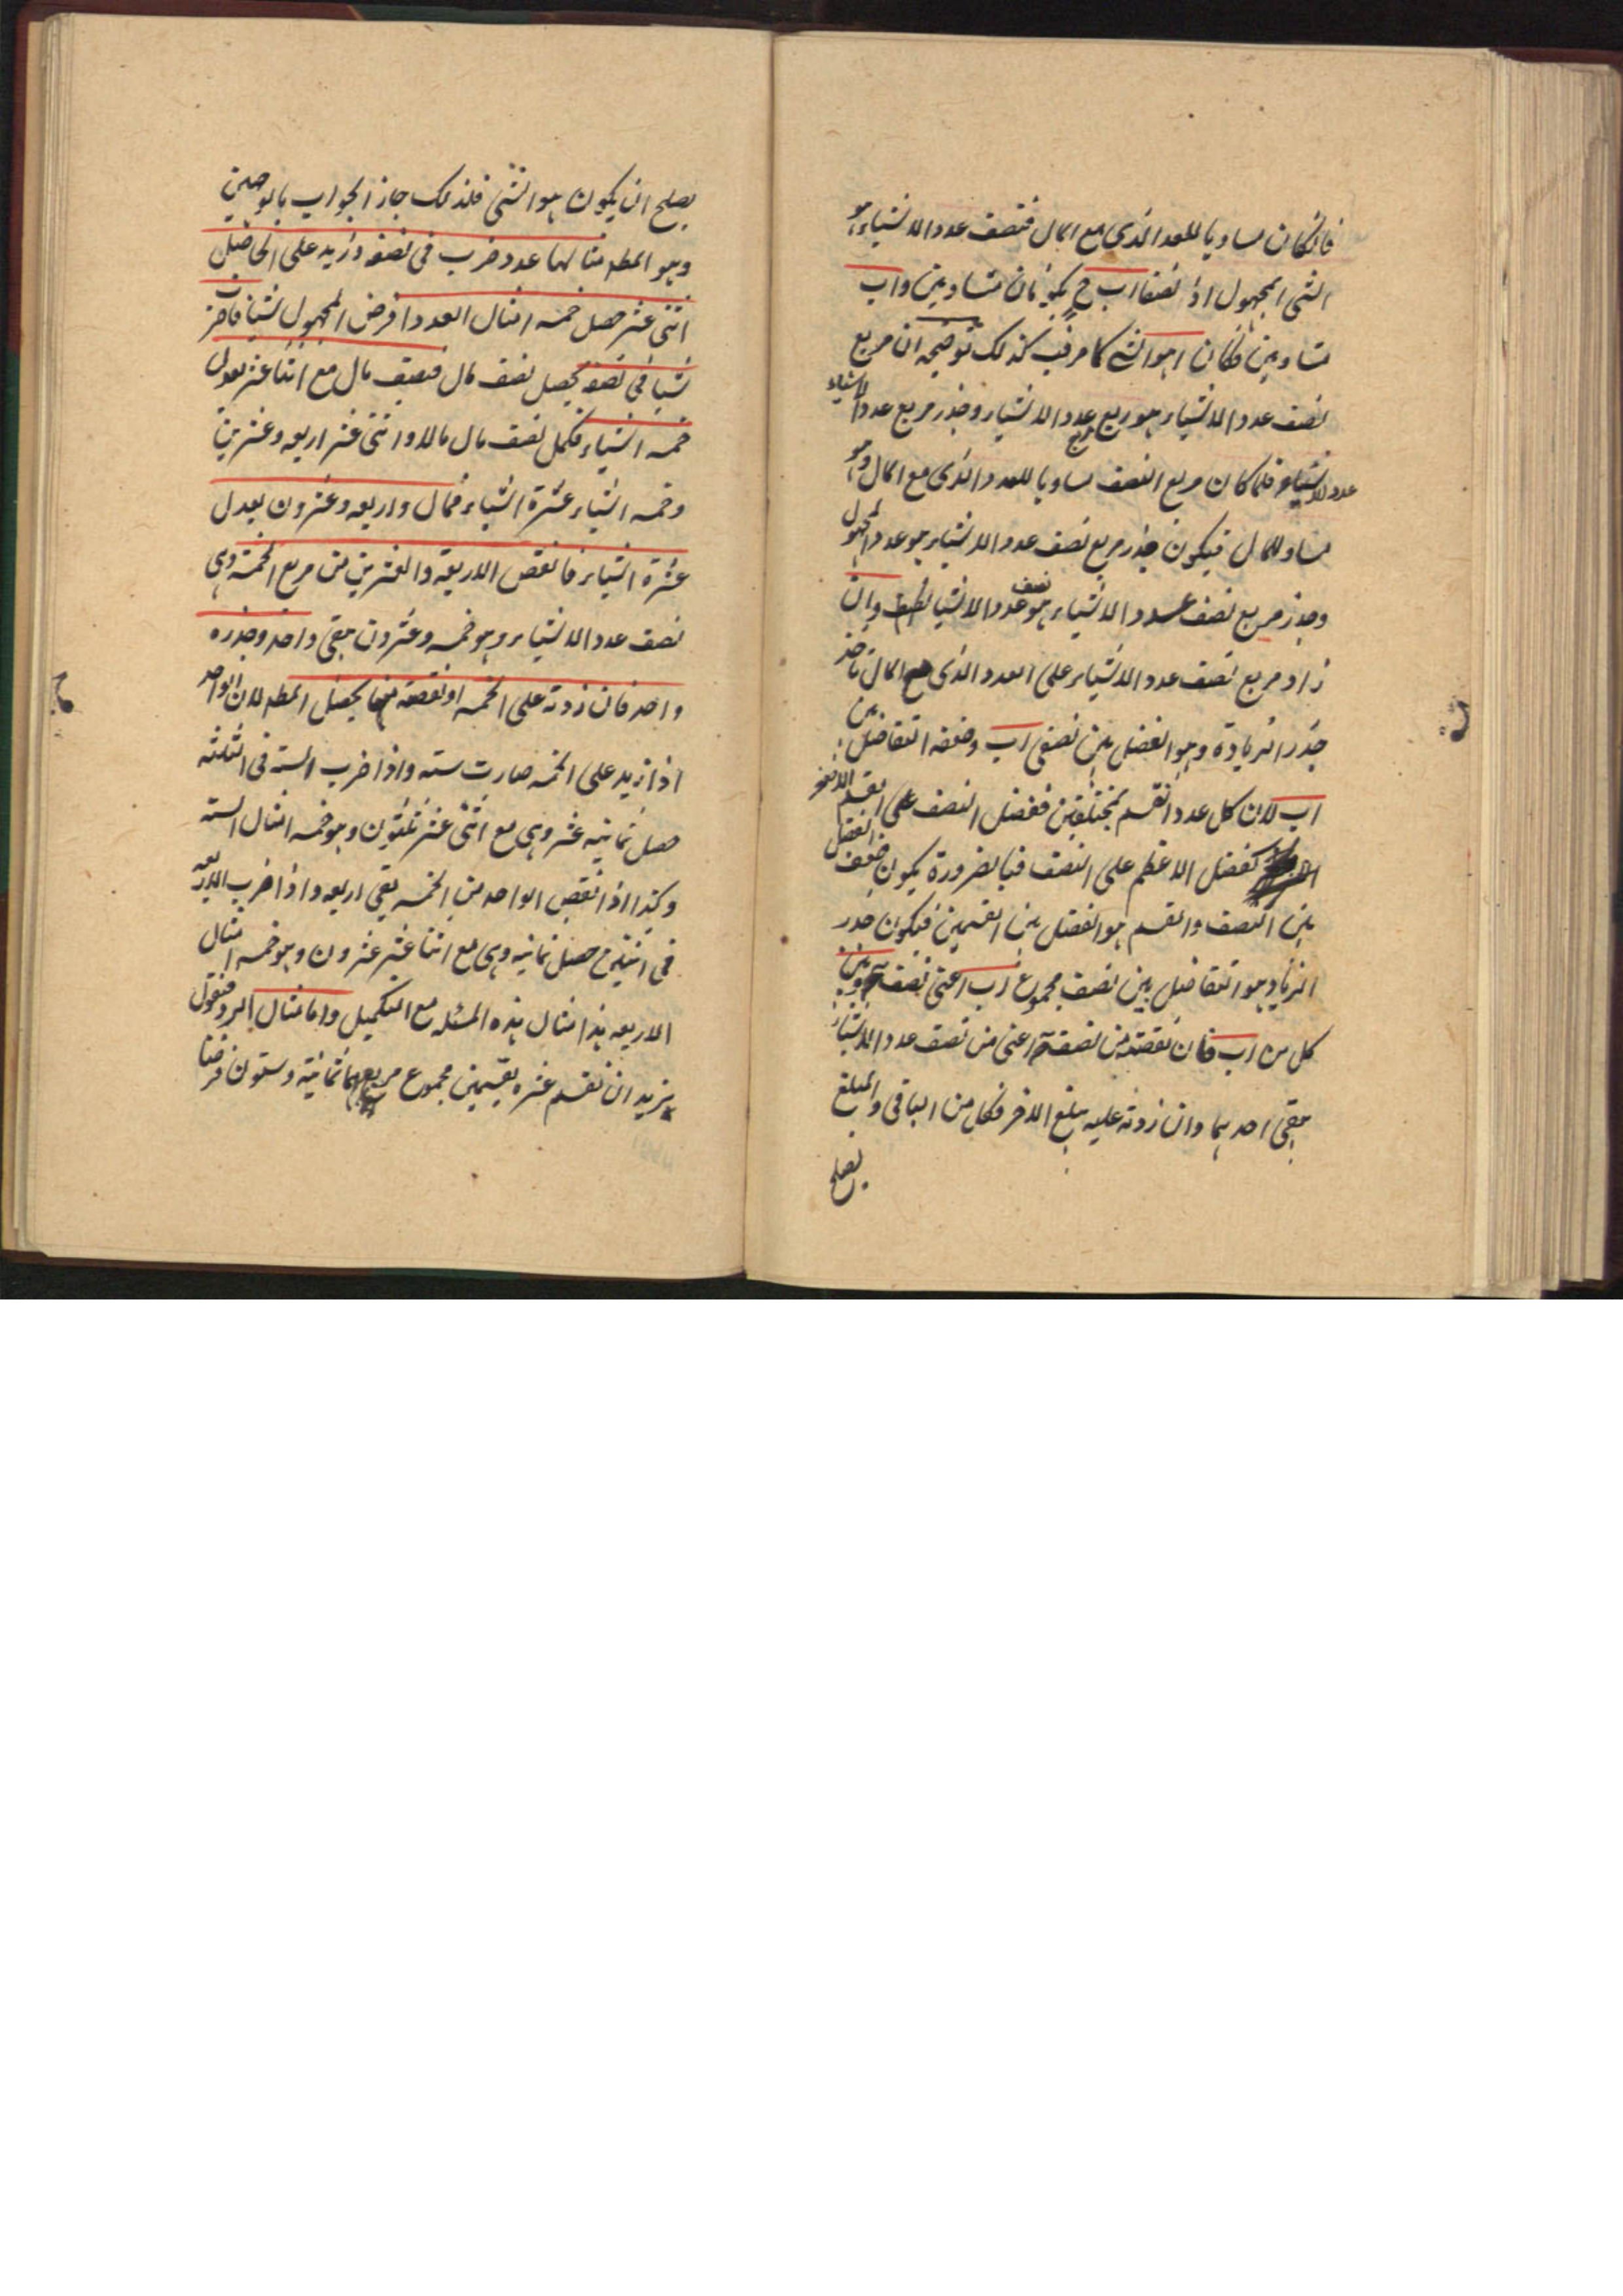 فانكان مساويا للعدد الذى مع المال فنصف عدد الاشياء هو
الشى المجهول اذ نصفا اب ح يكونان متساويين و اب
متساويين فكان ا هو الشى كما مر فب كذلك توضيحه ان مربع
نصف عدد الاشياء هو ربع مربع عدد الاشياء وجذر مربع عدد الاشياء
عدد الاشياء فلما كان مربع النصف مساويا للعدد الذى مع المال وهو
مساو للمال فيكون جذر مربع نصف عدد الاشياء هو عدد المجهول
وجذر مربع نصف عدد الاشياء هو نصف عدد الاشيا وان
زاد مربع نصف عدد الاشياء على العدد الذى مع المال تاخذ
جذر الزيادة وهو الفضل بين نصفى اب وضعفه التفاضل بين
اب لان كل عدد انقسم بمختلفين ففضل النصف على القسم الاصغر
كفضل الاعظم على النصف فبالضرورة يكون ضعف الفضل
بين النصف والقسم هو الفضل بين القسمين فيكون جذر
الزياد هو التفاضل بين نصف مجموع اب اعنى نصف وبين
كل من اب فان نقصته من نصف اعنى من نصف عدد الاشياء
يبقى احدهما وان زدته عليه يبلغ الاخر فكل من الباقى والمبلغ
يصلح
يصلح ان يكون هو الشى فلذلك جاز الجواب بالوجهين
وهو المط مثالها عدد ضرب فى نصفه وزيد على الحاصل
اثنى عشر حصل خمسه امثال العدد افرض المجهول شيئا فاضرب
شيا فى نصفه يحصل نصف مال فنصف مال مع اثنا عشر يعدل
خمسه اشياء فكمل نصف مال مالا واثنى عشر اربعه وعشرين
وخمسه اشياء عشرة اشياء فمال واربعه وعشرون يعدل
عشرة اشياء فانقص الاربعة والعشرين من مربع الخمسة وهى
نصف عدد الاشياء وهو خمسه وعشرون يبقى واحد وجذره
واحد فان زدته على الخمسه او نقصته منها يحصل المط لان الواحد
اذا زيد على الخمسه صارت سته واذا ضرب الستة فى الثلثه
حصل ثمانيه عشر وهى مع اثنى عشر ثلثون وهو خمسه امثال الستة
وكذا اذا نقص الواحد من الخمسه بقى اربعه واذا ضرب الاربعه
فى اثنين حصل ثمانيه وهى مع اثنا عشر عشرون وهو خمسه امثال
الاربعه هذا مثال هذه المسئله مع التكميل واما مثال الرد فنقول
نريد ان نقسم عشره بقسمين مجموع مربعهما ثمانية وستون فرضنا